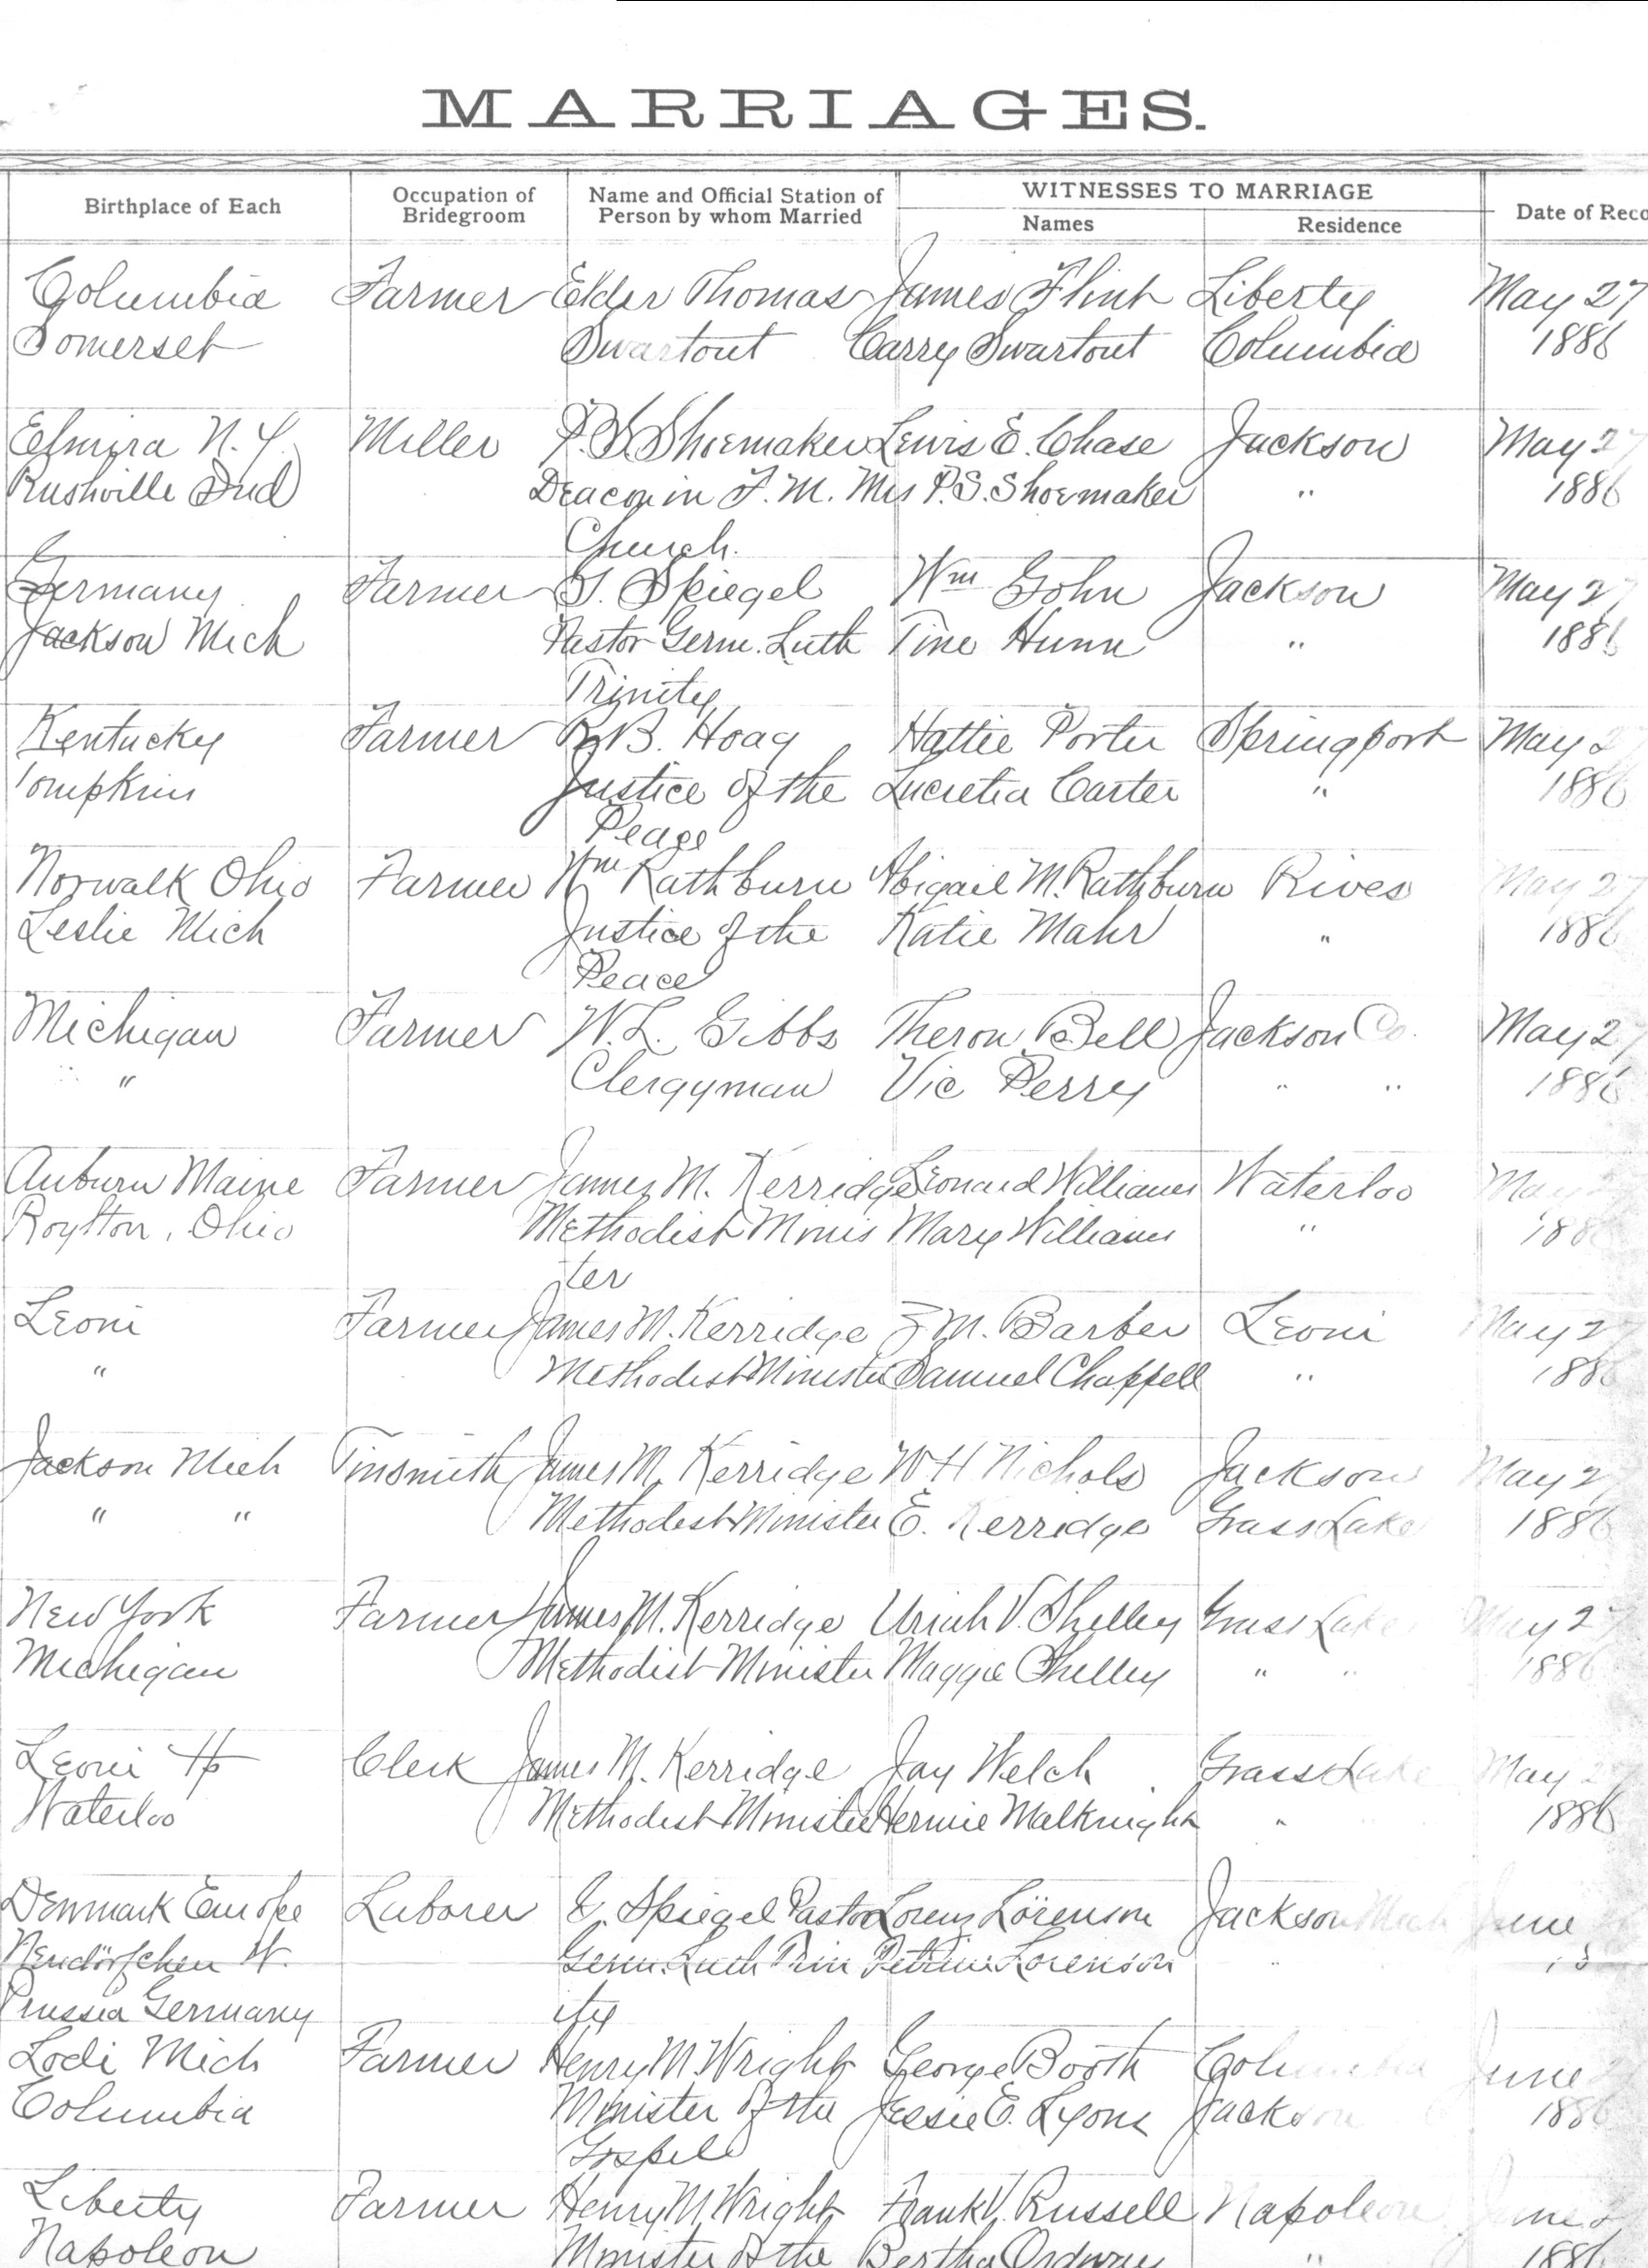 MARRIAGES.
Birthplace of Each Occupation of Bridegroom Name and Official Station of Person by whom Married WITNESSES TO MARRIAGE Names Residence Date of Reco
Columbia Farmer Elder Thomas James Flint Liberty May 27
Somerset Swartout Carry Swartout Columbia 1886
Elmira N.Y. Miller P.S. Shoemaker Lewis E. Chase Jackson May 27
Rushville Ind Deacon in F. M. Mrs P.S. Shoemaker " 1886
Church.
Germany Farmer Spiegel Wm Gohn Jackson May 27
Jackson Mich Pastor Germ. Luth Tine Hunn " 1886
Trinity
Kentucky Farmer R.B. Hoag Hattie Porter Springport May 2
Tompkins Justice of the Lucretia Carter " 1886
Peace
Norwalk Ohio Farmer Wm Rathburn Abigail M. Rathburn Rives May 27
Leslie Mich Justice of the Katie Mahr " 1886
Peace
Michigan Farmer W.L. Gibbs Theron Bell Jackson Co. May 27
" Clergyman Vic Perry " " 1886
Auburn Maine Farmer James M. Kerridge Leonard Williams Waterloo May
Roylton, Ohio Methodist Minis Mary Williams " 188
ter
Leoni Farmer James M. Kerridge M. Barber Leoni May 27
" Methodist Minister Samuel Chappell " 1886
Jackson Mich Tinsmith James M. Kerridge W H Nichols Jackson May 2
" " Methodist Minister E. Kerridge Grass Lake 1886
New York Farmer James M. Kerridge Uriah V. Shelley Grass Lake May 27
Michigan Methodist Minister Maggie Shelley " " 1886
Leoni Tp Clerk James M. Kerridge Jay Welch Grass Lake May 2
Waterloo Methodist Minister Hermie Malknight " 1886
Denmark Europe Laborer Spiegel Pastor Lorenz Lörenson Jackson Mich June
Neudörfchen W. Germ. Luth Trin Lorenson "
Prussia Germany ity
Lodi Mich Farmer Henry M. Wright George Booth Columbia June
Columbia Minister of the Jessie E. Lyons Jackson 1886
Gospel
Liberty Farmer Henry M. Wright Frank V. Russell Napoleon June
Napoleon Minister of the Bertha Ordway " 1886